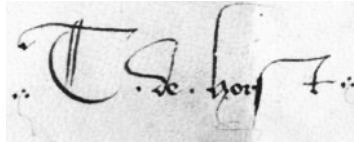 T. de. horst